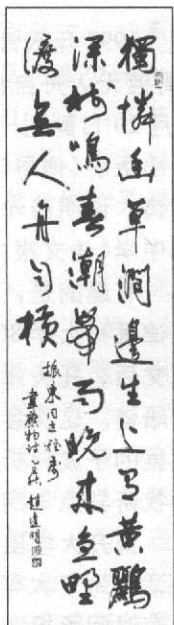 獨憐幽草澗邊生上有黃鸝
深树鳴春潮帶雨晚来急野
渡無人舟自横
振東同志
韋應物詩 趙遠明